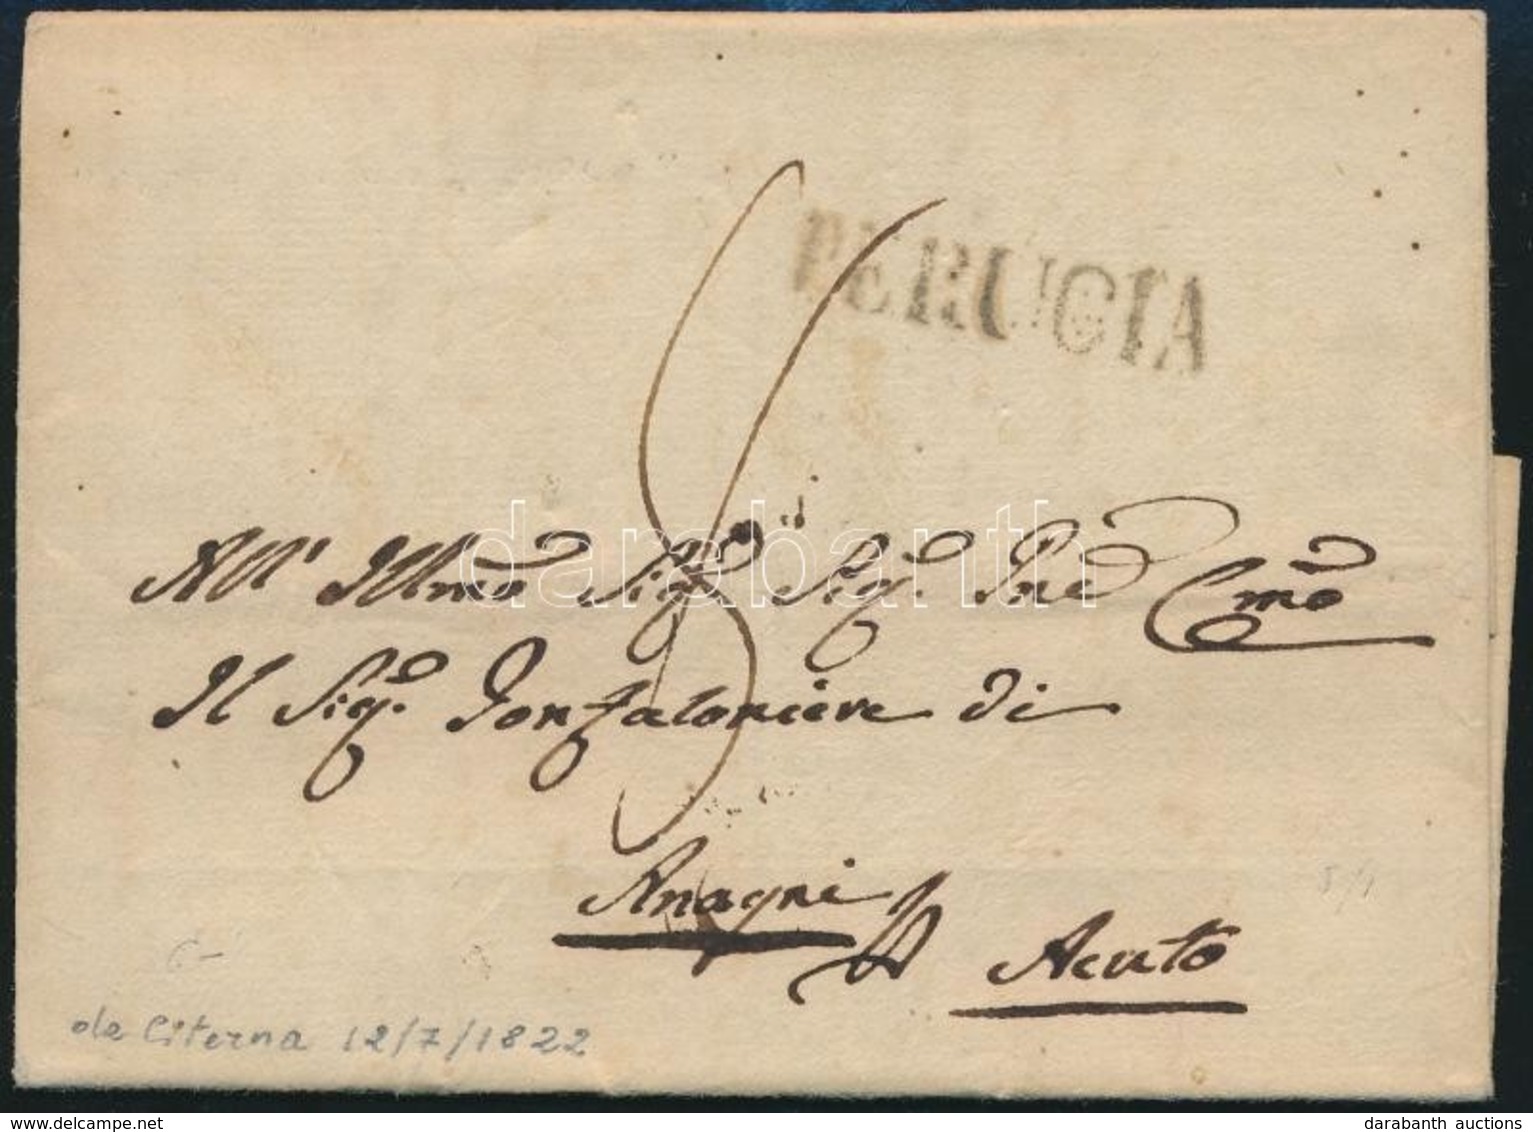 PERUGIA
8
darabanth
All' Illmo Sig.e Sig. Pne Cmo
Il Sig.e Gonfaloniere di
Anagni
p Acuto
da Citerna 12/7/1822
darabanth auctions
delcampe.net